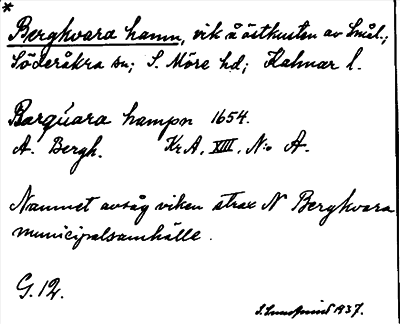 *
Bergkvara hamn, vik å östkusten av Smål.;
Söderåkra sn; S. Möre hd; Kalmar l.
Barquara hampn 1654.
A. Bergh. KrA, XIII, No A.
Namnet avsåg viken strax N Bergkvara
municipalsamhälle.
G. 12.
1937.